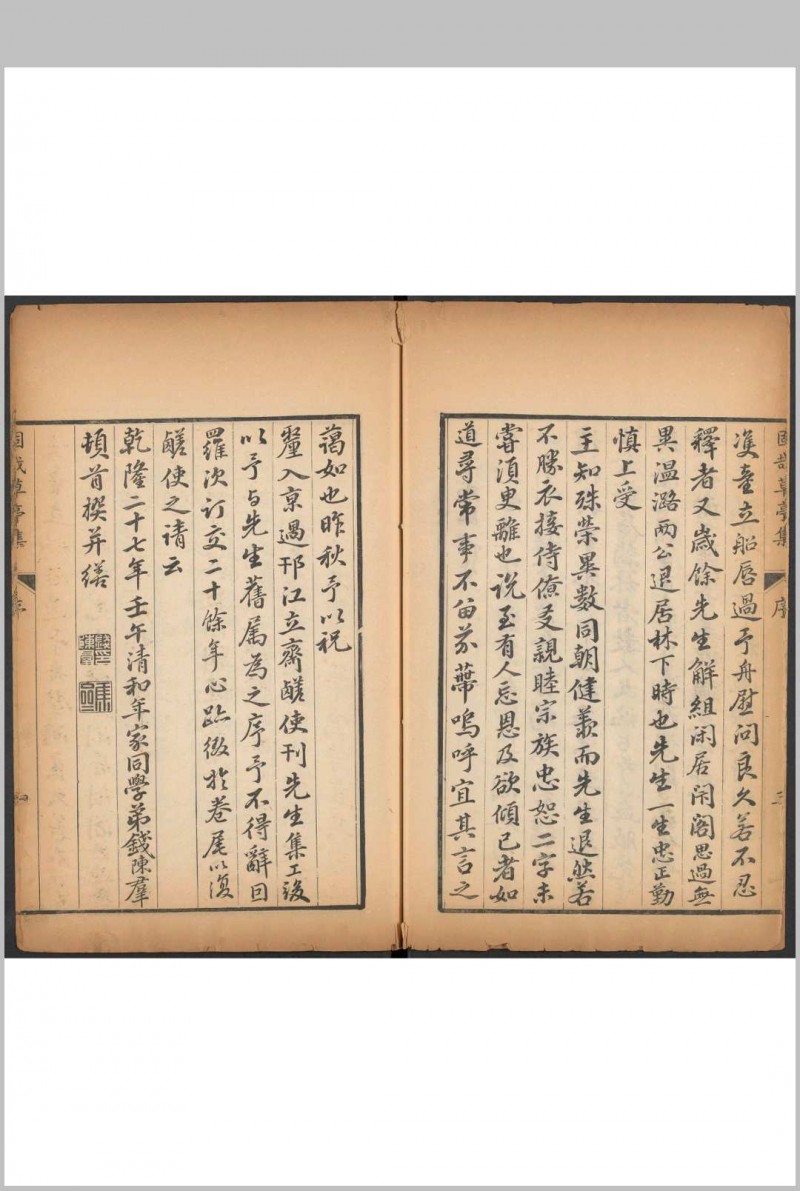 固哉草亭集 序 三
童立船唇過予舟慰問良久若不忍
釋者又歲餘先生解組閑居閉閣思過無
異溫潞兩公退居林下時也先生一生忠正勤
慎上受
主知殊榮異數同朝健羨而先生退然若
不勝衣接侍僚友親睦宗族忠恕二字未
嘗須臾離也說至有人忘恩及欲傾己者如
道尋常事不留芥蔕嗚呼宜其言之
藹如也昨秋予以祝
釐入京過邗江立齋鹺使刊先生集工竣
以予与先生舊屬為之序予不得辭因
羅次訂交二十餘年心跡綴於卷尾以復
鹺使之請云
乾隆二十七年壬午清和年家同學弟錢陳羣
頓首撰并繕
固哉草亭集 序